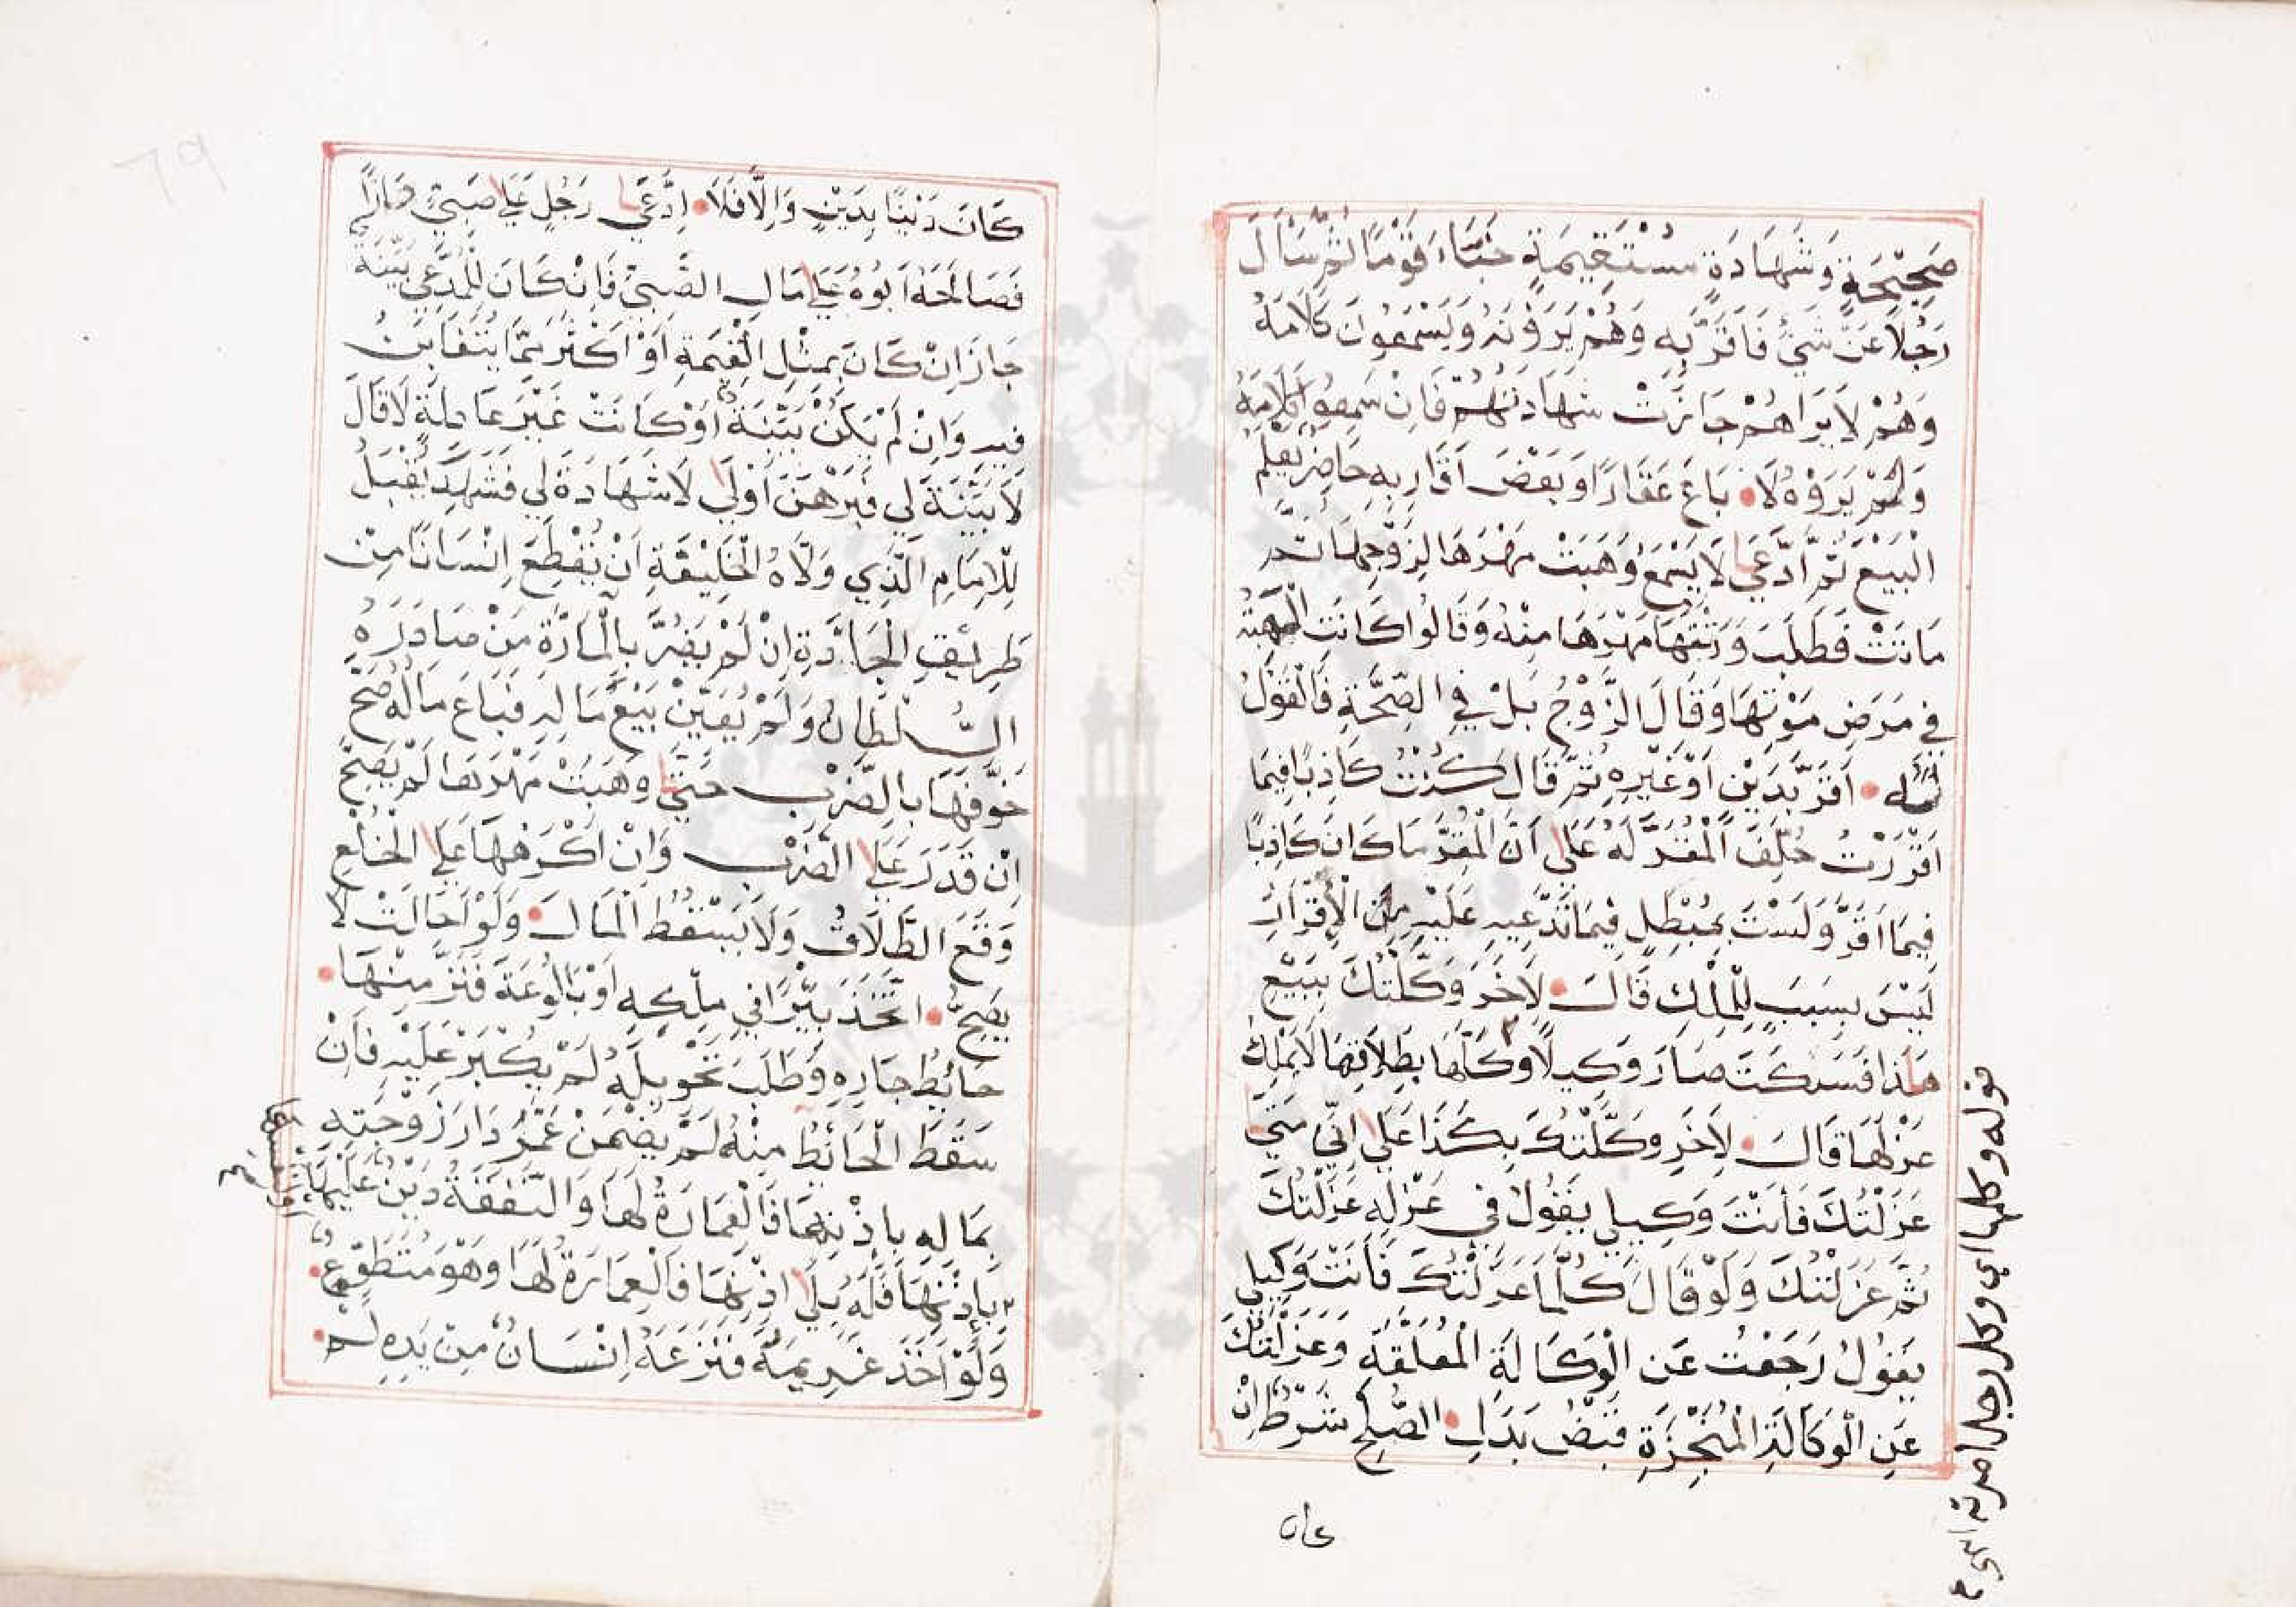 صَحِيْحَةٍ وَشَهَادَةٍ مُسْتَقِيمَةٍ خَبَّاءَ قَوْمًا ثُمَّ سَأَلَ
رَجُلًا عَنْ شَيْءٍ فَاَقَرَّ بِهِ وَهُمْ يَرَوْنَهُ وَيَسْمَعُونَ كَلَامَهُ
وَهُمْ لَا يَرَاهُمْ جَازَتْ شَهَادَتُهُمْ فَاِنْ سَمِعُوا كَلَامَهُ
وَلَمْ يَرَوْهُ لَا بَاعَ عَقَارًا وَبَعْضُ اَقَارِبِهِ حَاضِرٌ يَعْلَمُ
الْبَيْعَ ثُمَّ ادَّعَى لَا يُسْمَعُ وَهَبَتْ مَهْرَهَا لِزَوْجِهَا ثُمَّ
مَاتَتْ فَطَلَبَ وَرَثَتُهَا مَهْرَهَا مِنْهُ وَقَالُوا كَانَتِ الْهِبَةُ
فِي مَرَضِ مَوْتِهَا وَقَالَ الزَّوْجُ بَلْ فِي الصِّحَّةِ فَالْقَوْلُ
لَهُ اَقَرَّ بِدَيْنٍ اَوْ غَيْرِهِ ثُمَّ قَالَ كُنْتُ كَاذِبًا فِيمَا
اَقْرَرْتُ حُلِّفَ الْمُقَرُّ لَهُ عَلَى اَنَّ الْمُقِرَّ مَا كَانَ كَاذِبًا
فِيمَا اَقَرَّ وَلَسْتَ بِمُبْطِلٍ فِيمَا تَدَّعِيهِ عَلَيْهِ مِنَ الْاِقْرَارُ
لَيْسَ بِسَبَبٍ لِلْمِلْكِ قَالَ لِاٰخَرَ وَكَّلْتُكَ بِبَيْعِ
هٰذَا فَسَكَتَ صَارَ وَكِيلًا وَكَّلَهَا بِطَلَاقِهَا لَا يَمْلِكُ
عَزْلَهَا قَالَ لِاٰخَرِ وَكَّلْتُكَ بِكَذَا عَلَى اَنِّي مَتَى
عَزَلْتُكَ فَاَنْتَ وَكِيلِي يَقُولُ فِي عَزْلِهِ عَزَلْتُكَ
ثُمَّ عَزَلْتُكَ وَلَوْ قَالَ كُلَّمَا عَزَلْتُكَ فَاَنْتَ وَكِيلِي
يَقُولُ رَجَعْتُ عَنِ الْوَكَالَةِ الْمُعَلَّقَةِ وَعَزَلْتُكَ
عَنِ الْوَكَالَةِ الْمُنَجَّزَةِ قَبْضُ بَدَلِ الصُّلْحِ شَرْطٌ اِنْ
كان
قوله وكلها اي وكل رجل امرته
كَانَ دَيْنًا بِدَيْنٍ وَاِلَّا فَلَا اِدَّعَى رَجُلٌ عَلَى صَبِيٍّ دَارًا
فَصَالَحَهُ اَبُوهُ عَلَى مَالِ الصَّبِيِّ فَاِنْ كَانَ لِلْمُدَّعِي بَيِّنَةٌ
جَازَ اِنْ كَانَ بِمِثْلِ الْقِيمَةِ اَوْ اَكْثَرَ مِمَّا يُتَغَابَنُ
فِيهِ وَاِنْ لَمْ يَكُنْ بَيِّنَةٌ اَوْ كَانَتْ غَيْرَ عَادِلَةٍ لَا قَالَ
لَا بَيِّنَةَ لِي فَبَرْهَنَ اَوْ لَا لَا شَهَادَةَ لِي فَشَهِدَ يُقْبَلُ
لِلْاِمَامِ الَّذِي وَلَّاهُ الْخَلِيفَةِ اَنْ يُقْطِعَ اِنْسَانًا مِنْ
طَرِيْقِ الْجَادَّةِ اِنْ لَمْ يَضُرَّ بِالْمَارَّةِ مَنْ صَادَرَهُ
السُّلْطَانُ وَلَمْ يُعَيِّنْ بَيْعَ مَالِهِ فَبَاعَ مَالَهُ صَحَّ
خَوَّفَهَا بِالضَّرْبِ حَتَّى وَهَبَتْ مَهْرَهَا لَمْ يَصِحَّ
اِنْ قَدَرَ عَلَى الضَّرْبِ وَاِنْ اَكْرَهَهَا عَلَى الْخُلْعِ
وَقَعَ الطَّلَاقُ وَلَا يَسْقُطُ الْمَالَ وَلَوْ اَحَالَتْ لَا
يَصِحُّ اتَّخَذَ بِئْرًا فِي مِلْكِهِ اَوْ بَالُوعَةَ فَنَزَّ مِنْهَا
حَائِطُ جَارِهِ وَطَلَبَ تَحْوِيلَهُ لَمْ يُجْبَرْ عَلَيْهِ فَاِنْ
سَقَطَ الْحَائِطُ مِنْهُ لَمْ يَضْمَنْ عَمَّرَ دَارَ زَوْجَتِهِ
بِمَالِهِ بِاِذْنِهَا فَالْعِمَارَةُ لَهَا وَالنَّفَقَةُ دَيْنٌ عَلَيْهَا
بِاِذْنِهَا فَلَهُ بِلَا اِذْنِهَا فَالْعِمَارَةُ لَهَا وَهْوَ مُتَطَوِّعٌ
وَلَوْ اَخَذَ غَرِيمَهُ فَنَزَعَهُ اِنْسَانٌ مِنْ يَدِهِ لَمْ